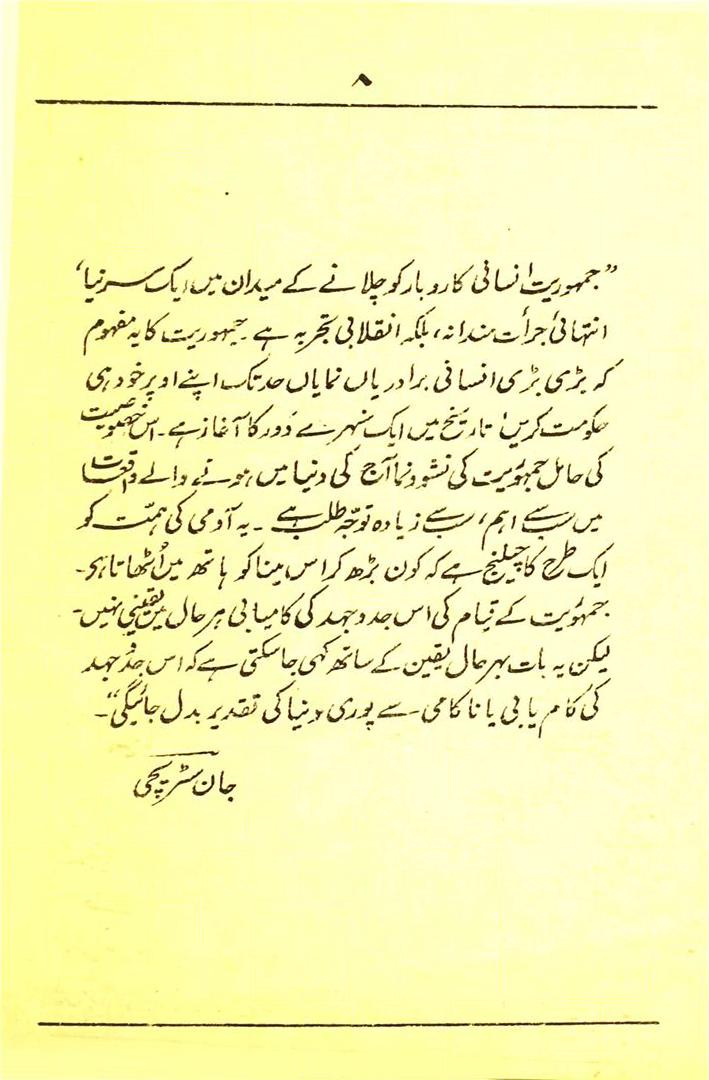 ۸
”جمہوریت انسانی کاروبار کو چلانے کے میدان میں ایک سر نیا،
انتہائی جرأت مندانہ، بلکہ انقلابی تجربہ ہے۔ جمہوریت کا یہ مفہوم
کہ بڑی بڑی انسانی برادریاں نمایاں حد تک اپنے اوپر خود ہی
حکومت کریں، تاریخ میں ایک سنہرے دَور کا آغاز ہے۔ اس خصوصیت
کی حامل جمہوریت کی نشوونما آج کی دنیا میں ہونے والے واقعات
میں سب سے اہم، سب سے زیادہ توجّہ طلب ہے۔ یہ آدمی کی ہمّت کو
ایک طرح کا چیلنج ہے کہ کون بڑھ کر اس مینا کو ہاتھ میں اُٹھاتا ہی۔
جمہوریت کے قیام کی اس جدوجہد کی کامیابی ہر حال میں یقینی نہیں۔
لیکن یہ بات بہر حال یقین کے ساتھ کہی جا سکتی ہے کہ اس جدوجہد
کی کامیابی یا ناکامی سے پوری دنیا کی تقدیر بدل جائیگی“۔
جان سٹریچی